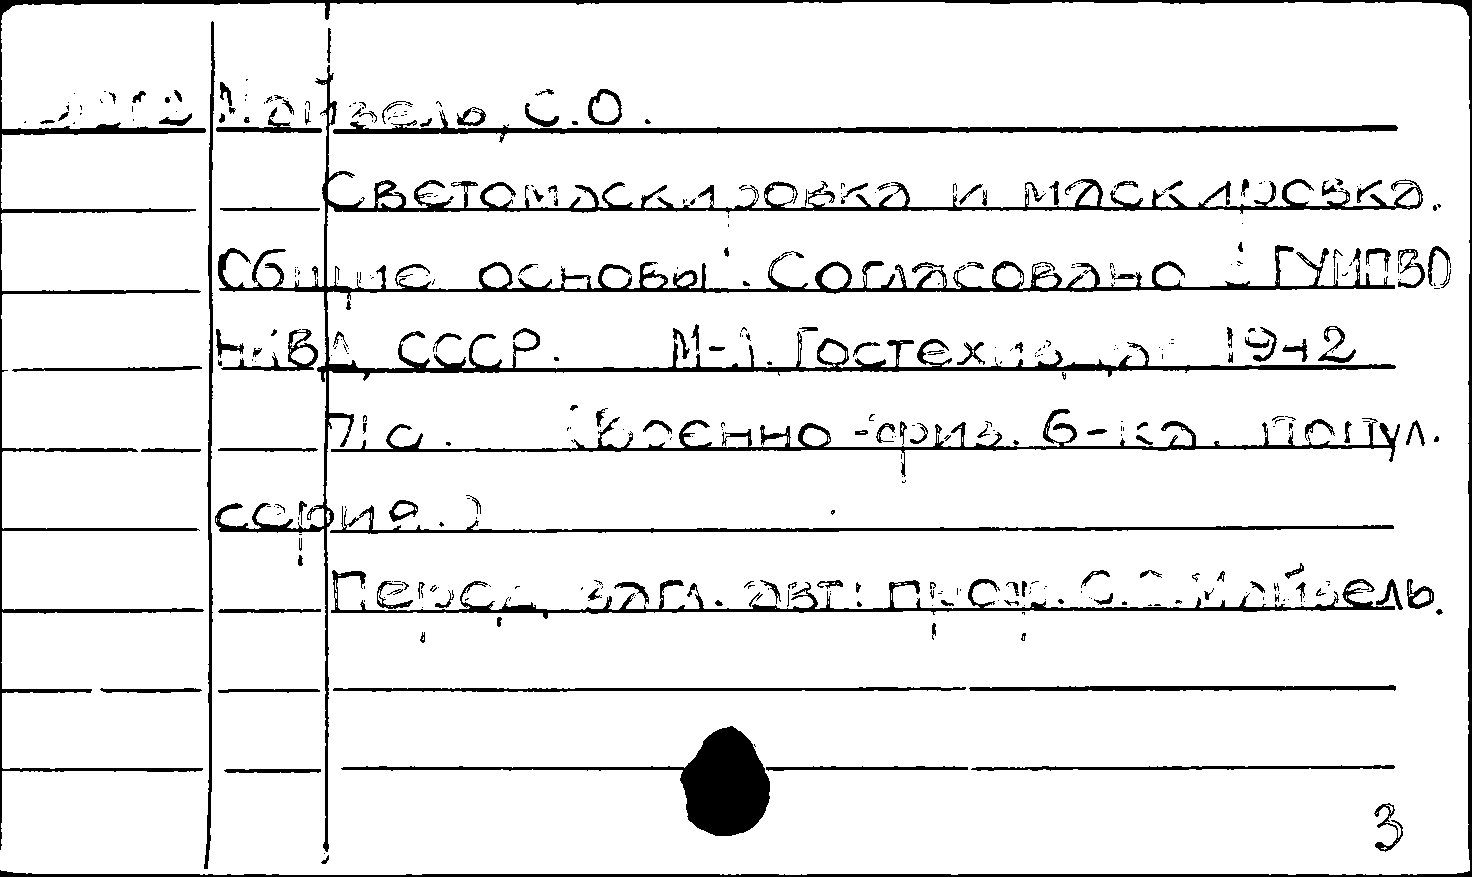 Майзель, С.О.
Светомаскировка и маскировка.
Общие основы. Согласовано с ГУМПВО
НКВД СССР. М-Л. Гостехиздат 1942
71 с. (Военно-физ. б-ка. попул.
серия.)
Перед загл. авт: проф. С.О. Майзель.
3